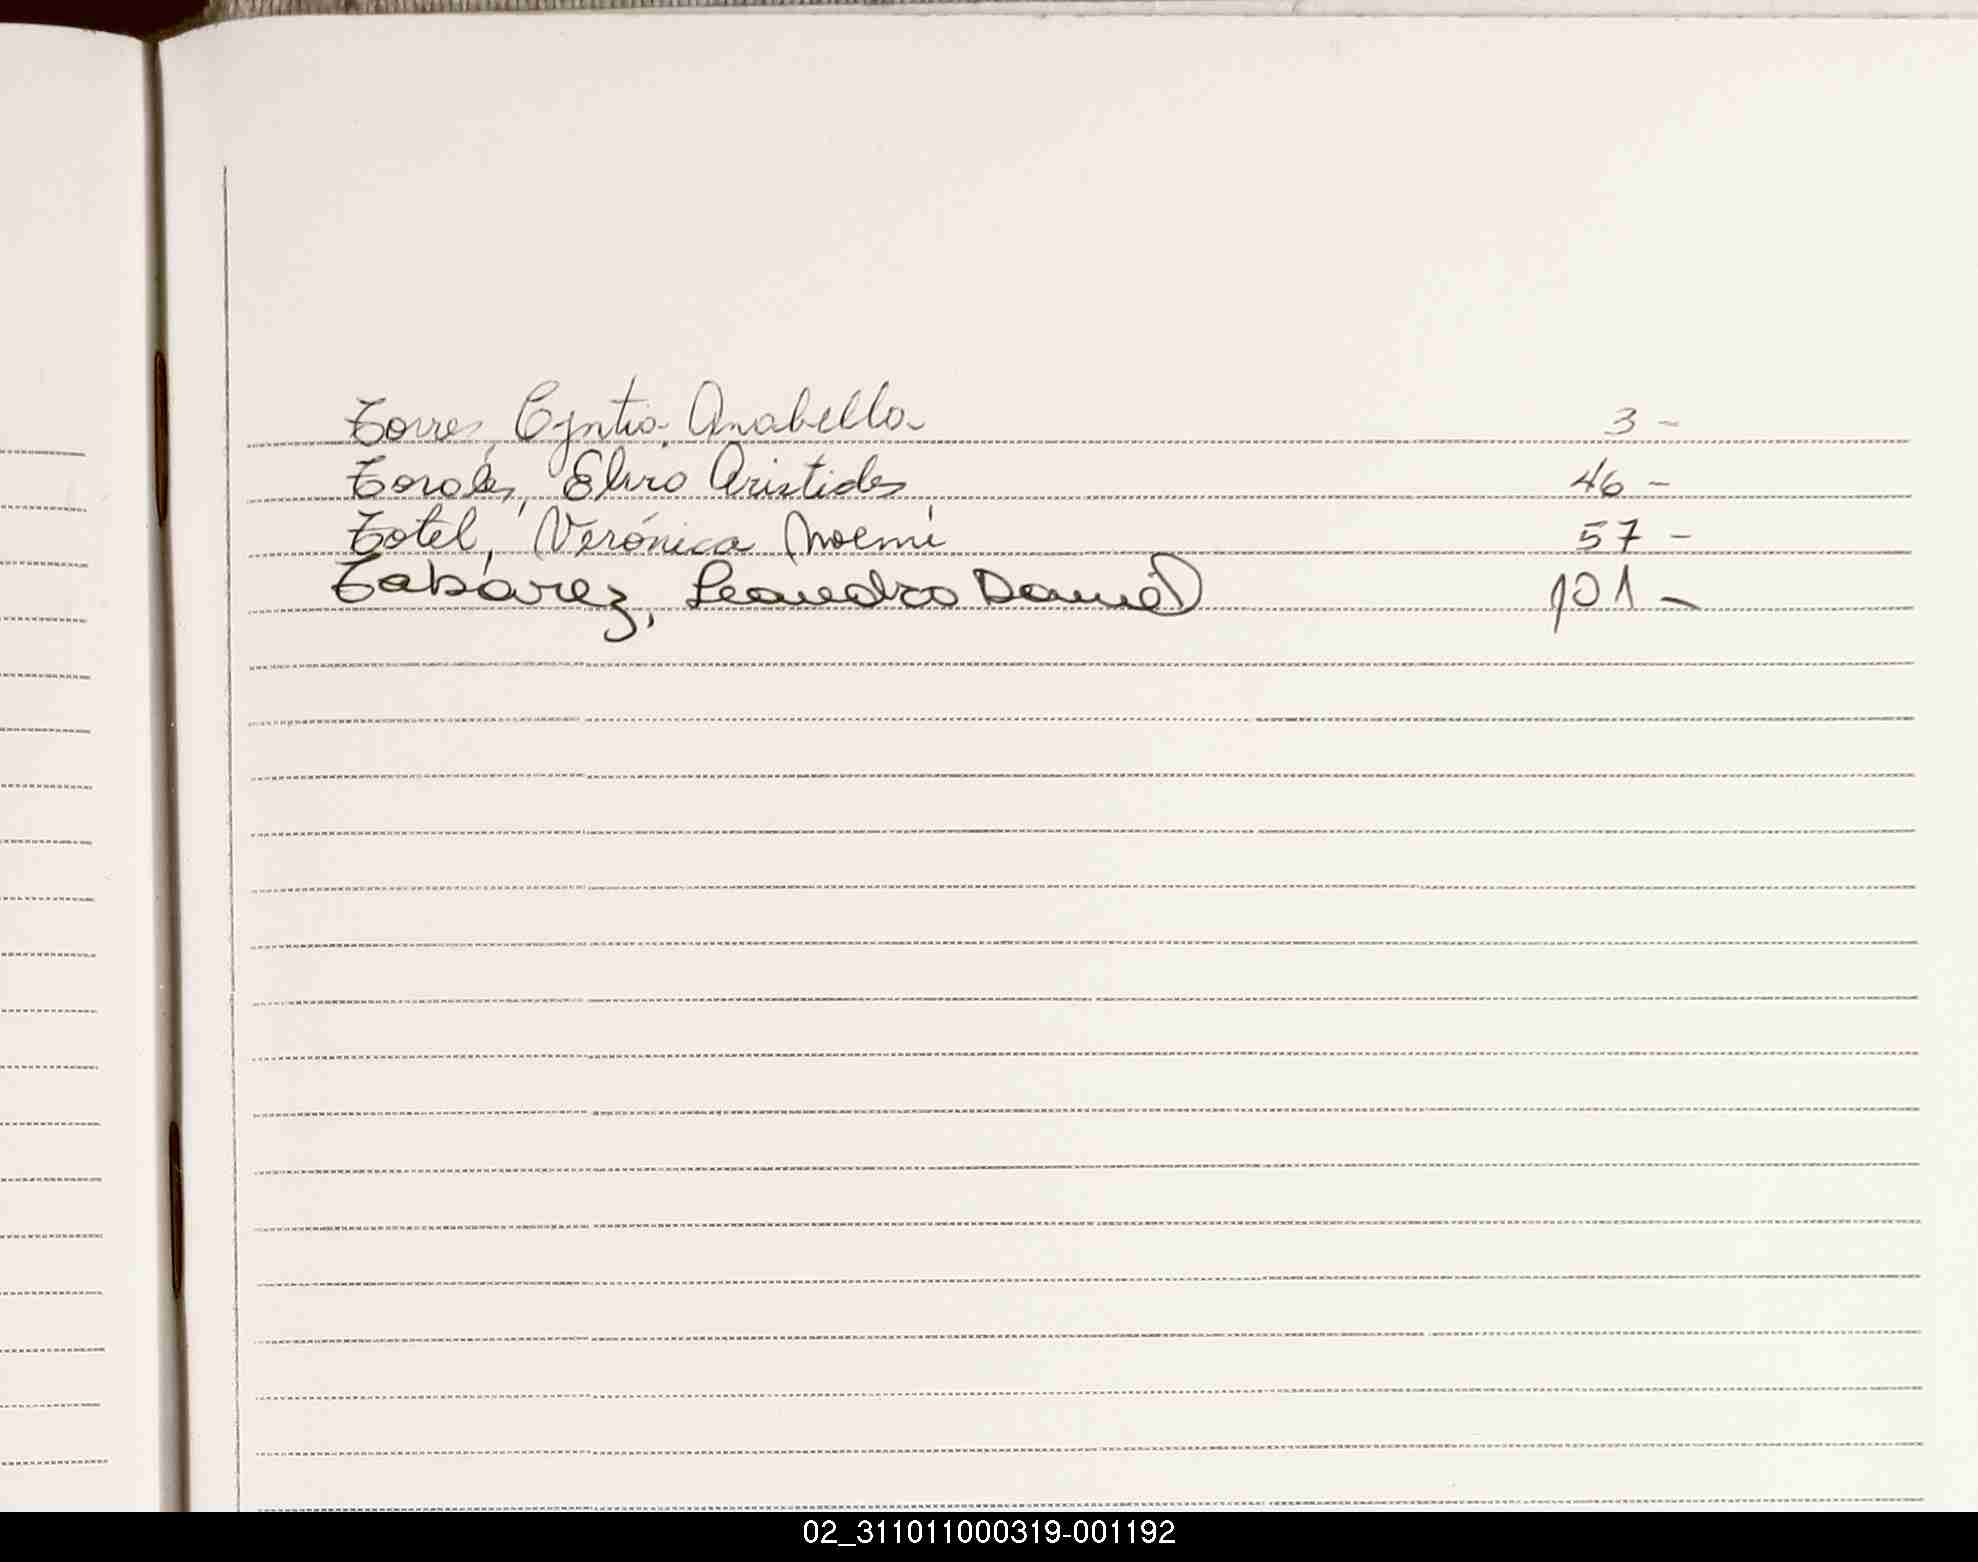 Torres, Cyntia Anabella 3 -
Torales, Elvio Aristides 46 -
Totel, Verónica Noemí 57 -
Tabárez, Leandro Daniel 101 -
02_311011000319-001192